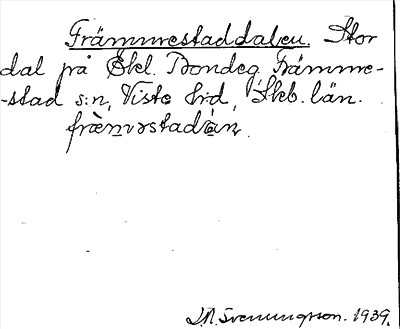 Främmestaddalen. Stor
dal på Ekl. Bondeg. Främme-
-stad s:n, Viste h:d, Skb. län.
fræmǝstadàn.
J.A. Svenungsson. 1939.